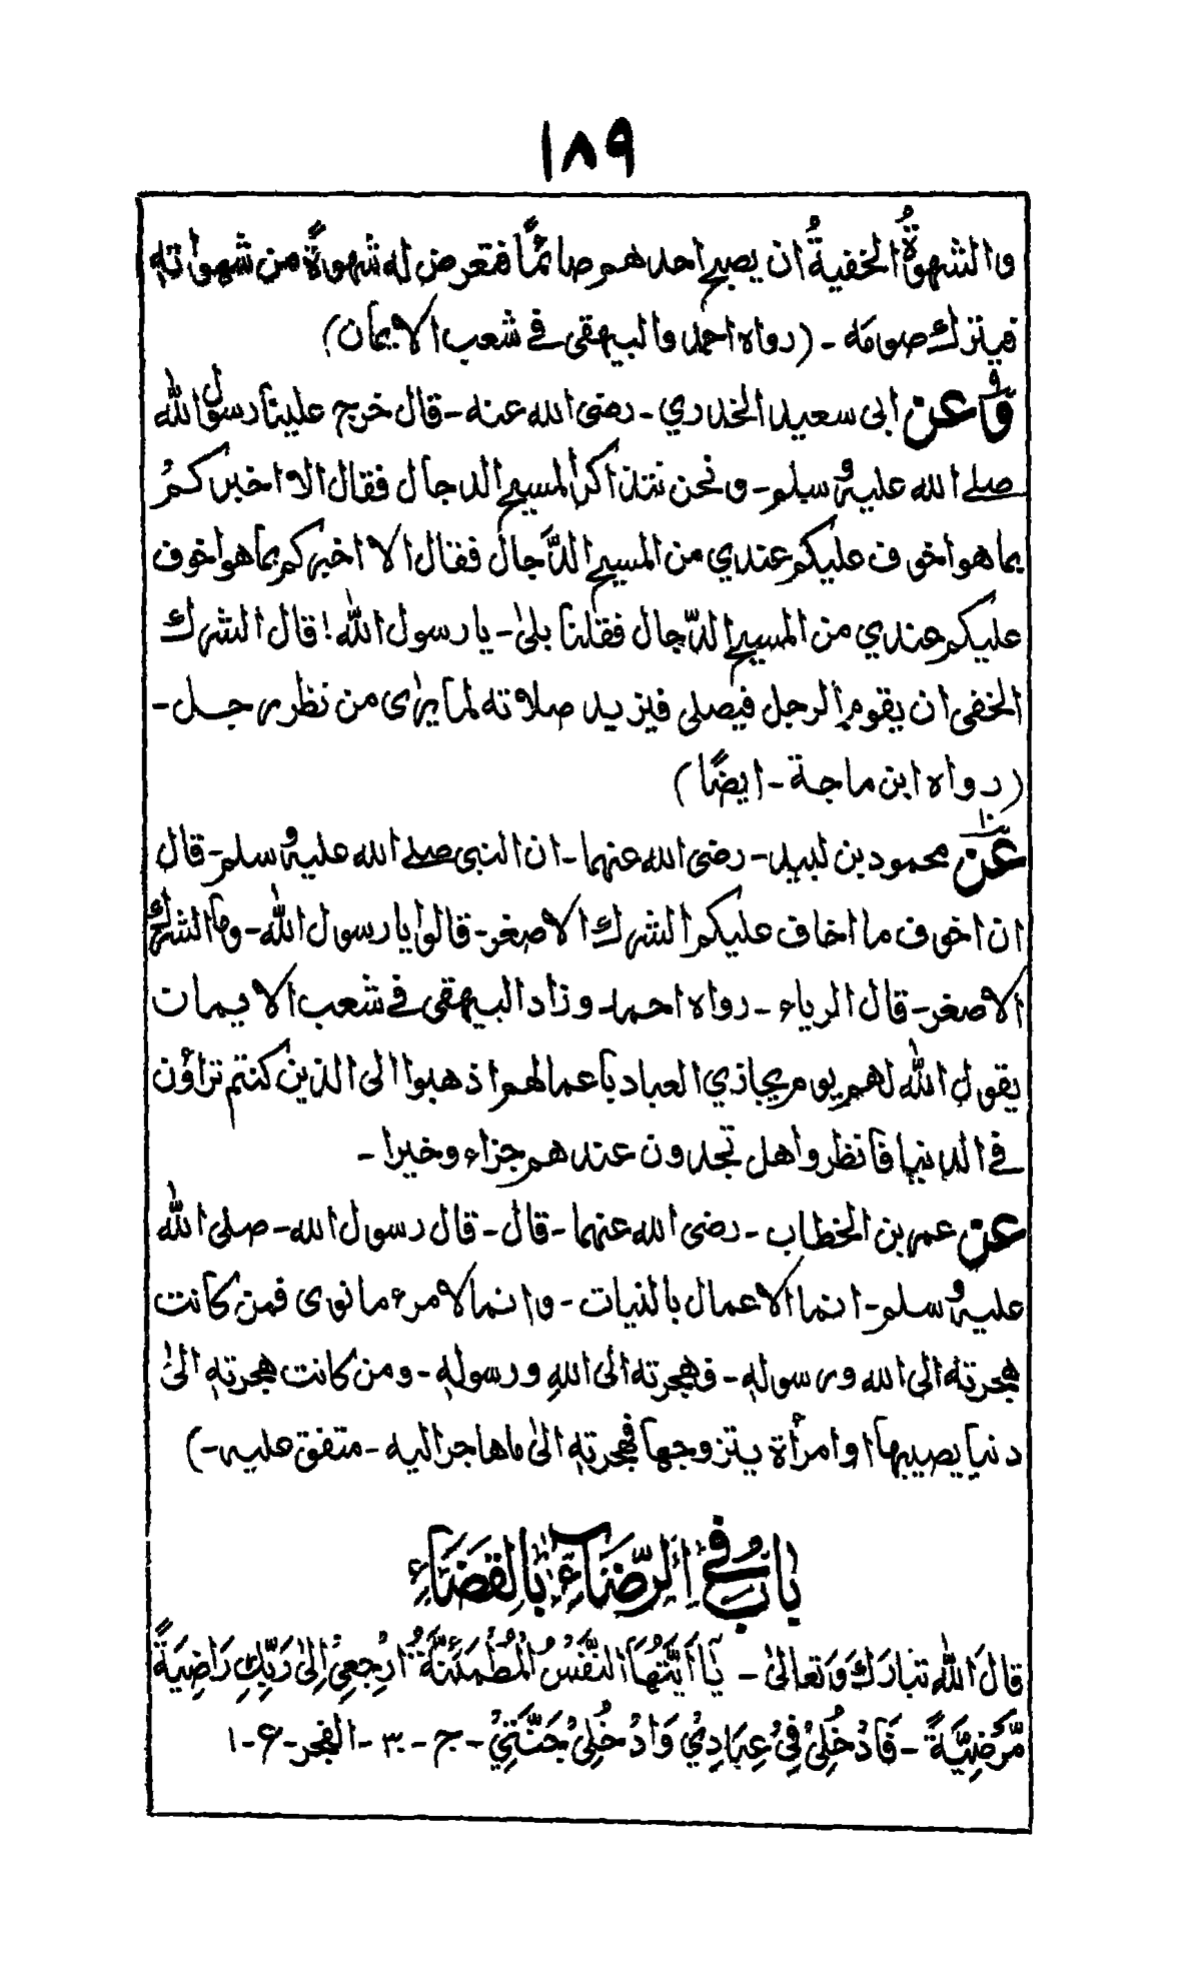 ۱۸۹
والشهوةُ الخفيةُ ان يصبح احدهم صائمًا فتعرض له شهوةً من شهواته
فيترك صومَه - (رواه احمد والبيهقى فى شعب الايمان)
وعن ابى سعيد الخدري - رضى الله عنه - قال خرج علينا رسول الله
صلى الله عليه وسلم - ونحن نتذاكر المسيح الدجال فقال الا اخبركمُ
بما هو اخوف عليكم عندي من المسيح الدَّجال فقال الا اخبركم بما هو اخوف
عليكم عندي من المسيح الدّجال فقلنا بلىٰ - يا رسول الله! قال الشرك
الخفى ان يقوم الرجل فيصلى فيزيد صلاته لما يرٰى من نظر رجل -
(رواه ابن ماجة - ايضًا)
عن محمود بن لبيد - رضى الله عنهما - ان النبى صلى الله عليه وسلم - قال
ان اخوف ما اخاف عليكم الشرك الاصغر - قالوا يا رسول الله - وما الشرك
الاصغر - قال الرياء - رواه احمد - وزاد البيهقى فى شعب الايمان
يقول الله لهم يوم يجازي العباد باعمالهم اذهبوا الى الذين كنتم تراؤن
فى الدنيا فانظروا هل تجدون عندهم جزاء وخيرا -
عن عمر بن الخطاب - رضى الله عنهما - قال - قال رسول الله - صلى الله
عليه وسلم - انما الاعمال بالنيات - وانما لامرء ما نوى فمن كانت
هجرته الى الله ورسوله - فهجرته الى اللهِ ورسولهٖ - ومن كانت هجرتهٖ الىٰ
دنيا يصيبها او امرأة يتزوجها فهجرتهٖ الىٰ ما هاجر اليه - متفق عليه -)
بابُ فِى الرِّضَآءِ بِالْقَضَآءِ
قالَ اللهُ تبارَكَ وَتعالىٰ - يٰٓاَ اَيَّتُهَا النَّفْسُ الْمُطْمَئِنَّةُ ارْجِعِىْٓ اِلىٰ رَبِّكِ رَاضِيَةً
مَّرْضِيَّةً - فَادْخُلِىْ فِىْ عِبَادِيْ وَادْخُلِىْ جَنَّتِيْ - ج - ۳۰ - الفجر - ع - ۱